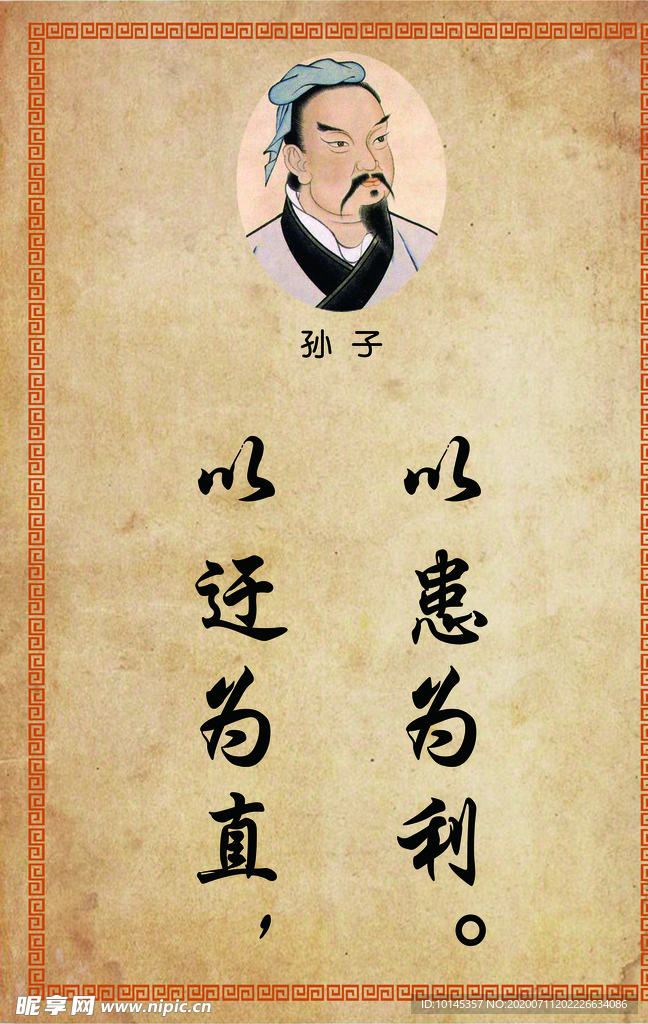 孙子
以迂为直，
以患为利。
昵享网 www.nipic.cn
ID:10145357 NO:20200711202226634086